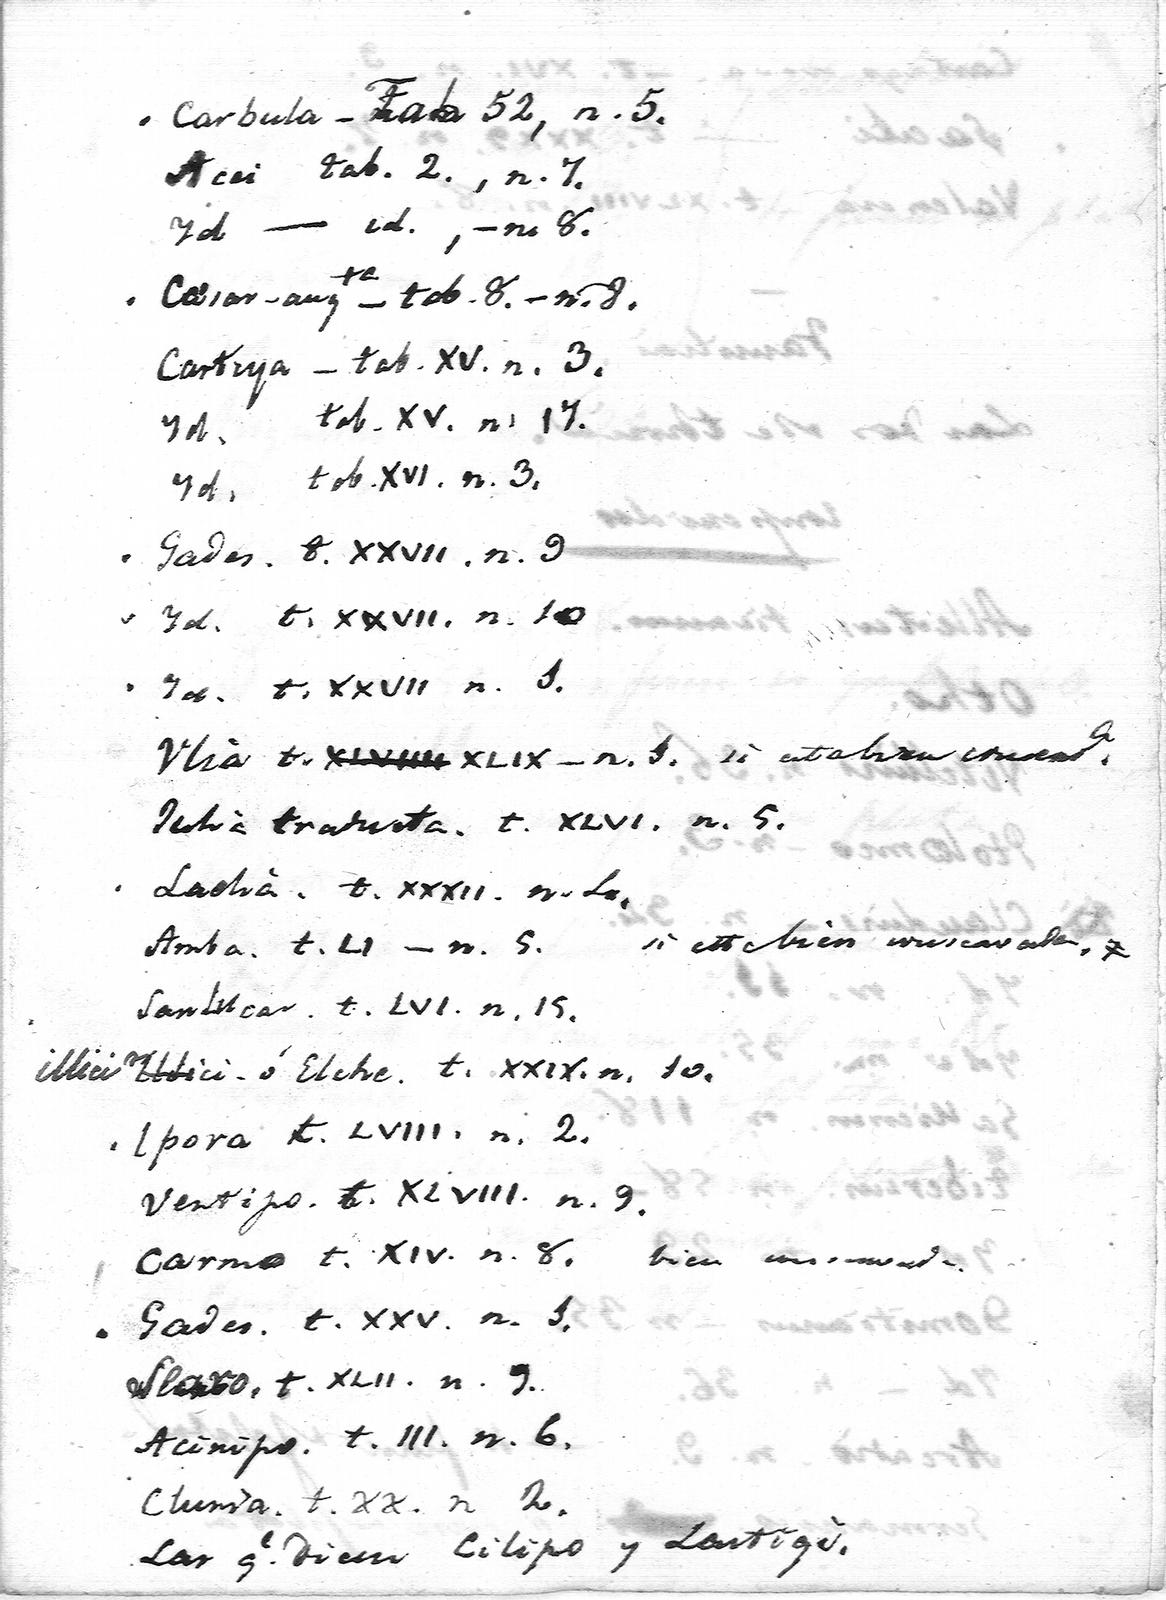 . Carbula - Tab 52, n. 5.
Acci tab. 2., n. 7.
Yd — id., - n. 8.
. Cæsar-augta - tab. 8. - n. 8.
Carteya - tab. XV. n. 3.
Yd. tab. XV. n. 17.
Yd. tab. XVI. n. 3.
. Gades. t. XXVII. n. 9
Yd. t. XXVII. n. 10
. Yd. t. XXVII n. 1.
Vlia t. XLVIIII XLIX - n. 1. si estabien
Iulia traducta. t. XLVI. n. 5.
. t. XXXII. n.
Amba. t. LI - n. 5. si esta bien
Sanlucar. t. LVI. n. 15.
illici ó Elche. t. XXIX. n. 10.
. Ipora t. LVIII. n. 2.
Ventipo. t. XLVIII. n. 9.
Carmo t. XIV. n. 8. bien
. Gades. t. XXV. n. 1.
t. XLII. n. 9.
Acinipo. t. III. n. 6.
Clunia. t. XX. n 2.
Las qe. dicen Cilipo y Lastigi.